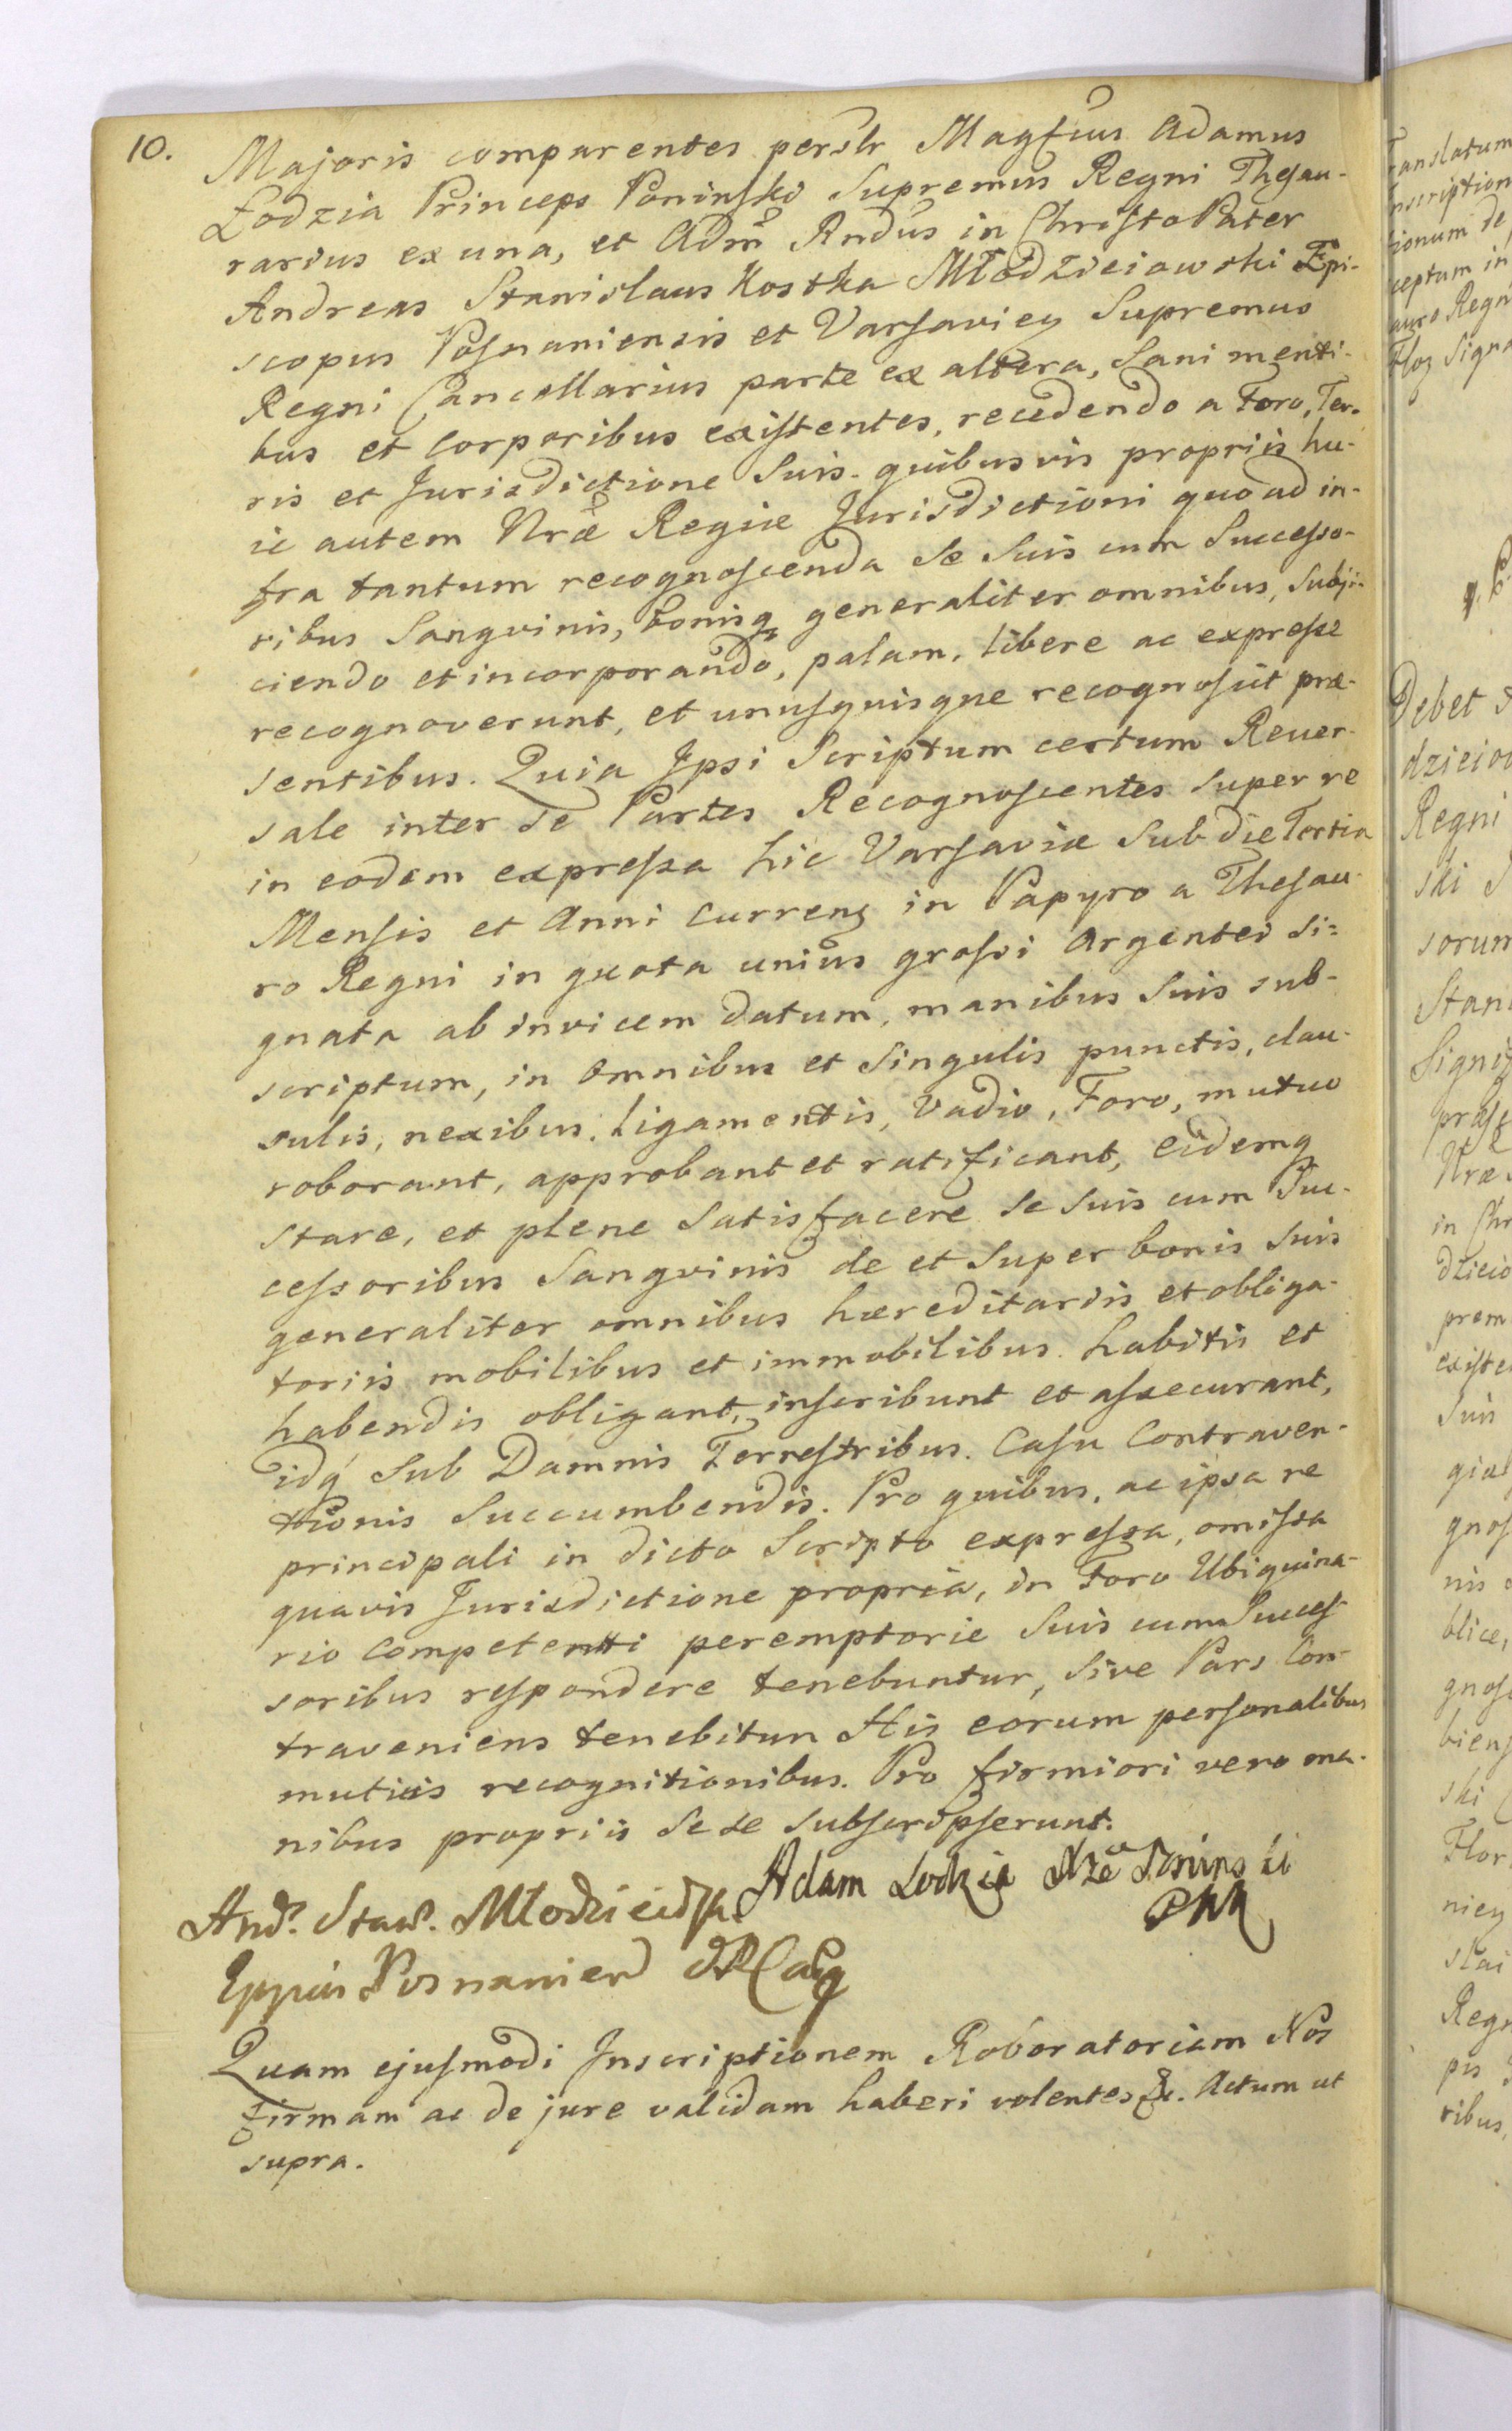 10.
Majoris comparentes perslr Magfcus Adamus
Łodzia Princeps Poninski Supremus Regni Thesau-
rarius ex una, et Adm̃ Rndus in Christo Pater
Andreas Stanislaus Kostka Młodzieiowski Epi-
scopus Posnaniensis et Varsaviey Supremus
Regni Cancellarius parte ex altera, Sani menti-
bus et Corporibus existentes, recedendo a Foro, Ter-
ris et Jurisdictione Suis quibusvis propriis hu-
ic autem Nræ Regiæ Jurisdictioni quo ad in-
fra tantum recognoscenda Se Suis cum Successo-
ribus Sangvinis, bonisq generaliter omnibus, Subji-
ciendo et incorporando, palam, libere ac expresse
recognoverunt, et unusquisque recognoscit præ-
sentibus. Quia Ipsi Scriptum certum Rever-
sale inter se Partes Recognoscentes Super re
in eodem expressa hic Varsaviæ Sub die Tertia
Mensis et Anni Curren̄ in Papyro a Thesau-
ro Regni in quota unius grossi Argentei Si=
gnata ab invicem datum, manibus Suis sub-
scriptum, in Omnibus et Singulis punctis, clau-
sulis, nexibus, Ligamentis, Vadio, Foro, mutuo
roborant, approbant et ratificant, Eidemq
stare, et plene Satisfacere Se Suis cum Suc-
cessoribus Sangvinis de et Super bonis Suis
generaliter omnibus hæreditariis et obliga-
toriis mobilibus et immobilibus habitis et
habendis obligant, inscribunt et assecurant,
idq́ Sub Damnis Terrestribus. Casu Contraven-
tionis Succumbendis. Pro quibus, ac ipsa re
principali in dicto Scripto expressa, omissa
quavis Jurisdictione propria, in Foro Ubiquina-
rio Competenti peremptorie Suis cum Succes-
soribus respondere tenebuntur, Sive Pars Con-
traveniens tenebitur His eorum personalibus
mutuis recognitionibus. Pro firmiori vero ma-
nibus propriis Sese Subscripserunt.
Adam Lodzia Xże Poninski
And. Staw. Młodzieiowski
Eppus Posnanien
Quam ejusmodi Inscriptionem Roboratoriam Nos
firmam ac de jure validam haberi volentes &c. Actum ut
supra.